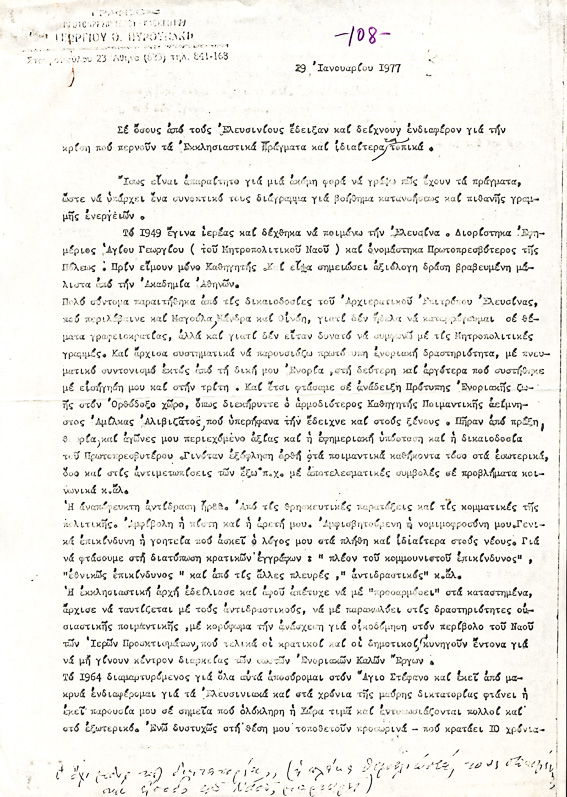 ΓΕΩΡΓΙΟΥ Θ. ΠΥΡΟΥΝΑΚΗ
23 Ἀθῆναι τηλ. 841-168
-108-
29 Ἰανουαρίου 1977
Σέ ὅσους ἀπό τούς Ἐλευσινίους ἔδειξαν καί δείχνουν ἐνδιαφέρον γιά τήν
κρίση πού περνοῦν τά Ἐκκλησιαστικά Πράγματα καί ἰδιαίτερα τοπικά .
Ἴσως εἶναι ἀπαραίτητο γιά μιά ἀκόμη φορά νά γράψω πῶς ἔχουν τά πράγματα,
ὥστε νά ὑπάρχει ἕνα συνοπτικό τους διάγραμμα γιά βοήθημα κατανοήσεως καί πιθανῆς γραμ-
μῆς ἐνεργειῶν .
Τό 1949 ἔγινα ἱερέας καί δέχθηκα νά ποιμένω τήν Ἐλευσῖνα . Διορίστηκα Ἐφη-
μέριος Ἁγίου Γεωργίου ( τοῦ Μητροπολιτικοῦ Ναοῦ ) καί ὀνομάστηκα Πρωτοπρεσβύτερος τῆς
Πόλεως . Πρίν εἴμουν μόνο Καθηγητής .Καί εἶχα σημειώσει ἀξιόλογη δράση βραβευμένη μά-
λιστα ἀπό τήν Ἀκαδημία Ἀθηνῶν.
Πολύ σύντομα παραιτήθηκα ἀπό τίς δικαιοδοσίες τοῦ Ἀρχιερατικοῦ Ἐπιτρόπου Ἐλευσῖνας,
πού περιλάβαινε καί Μαγούλα, Μάνδρα καί Οἰνόη, γιατί δέν ἤθελα νά σέ θέ-
ματα γραφειοκρατίας, ἀλλά καί γιατί δέν εἶταν δυνατό νά συμφωνῶ μέ τίς Μητροπολιτικές
γραμμές. Καί ἄρχισα συστηματικά νά παρουσιάζω πρωτότυπη ἐνοριακή δραστηριότητα, μέ πνευ-
ματικό συντονισμό ἐκτός ἀπό τή δική μου Ἐνορία ,στή δεύτερη καί ἀργότερα πού συστήθηκε
μέ εἰσήγησή μου καί στήν τρίτη . Καί ἔτσι φτάσαμε σέ ἀνάδειξη Πρότυπης Ἐνοριακῆς ζω-
ῆς στόν Ὀρθόδοξο χῶρο, ὅπως διεκήρυττε ὁ ἁρμοδιότερος Καθηγητής Ποιμαντικῆς ἀείμνη-
στος Ἀμίλκας Ἀλιβιζᾶτος, πού ὑπερήφανα τήν ἔδειχνε καί στούς ξένους . Πῆραν ἀπό πρᾶξη,
θεωρία καί ἀγῶνες μου περιεχόμενο ἀξίας καί ἡ ἐφημεριακή ὑπόσταση καί ἡ δικαιοδοσία
τοῦ Πρωτοπρεσβυτέρου .Γινόταν ἐξόφληση ὀρθή στά ποιμαντικά καθήκοντα τόσο στά ἐσωτερικά,
ὅσο καί στίς ἀντιμετωπίσεις τῶν ἔξω π.χ. μέ ἀποτελεσματικές συμβολές σέ προβλήματα κοι-
νωνικά κ.ἄλ.
Ἡ ἀναπόφευκτη ἀντίδραση ἦρθε. Ἀπό τίς θρησκευτικές παρατάξεις καί τίς κομματικές τῆς
πολιτικῆς. Ἀμφίβολη ἡ πίστη καί ἡ ἀρετή μου. Ἀμφισβητούμενη ἡ νομιμοφροσύνη μου.Γενι-
κά ἐπικίνδυνη ἡ γοητεία πού ἀσκεῖ ὁ λόγος μου στά πλήθη καί ἰδιαίτερα στούς νέους. Γιά
νά φτάσουμε στή διατύπωση κρατικῶν ἐγγράφων : " πλέον τοῦ κομμουνιστοῦ ἐπικίνδυνος" ,
"ἐθνικῶς ἐπικίνδυνος " καί ἀπό τίς ἄλλες πλευρές ," ἀντιδραστικός" κ.ἄλ.
Ἡ ἐκκλησιαστική ἀρχή ἐδείλιασε καί ἀφοῦ ἀπέτυχε νά μέ "προσαρμόσει" στά κατεστημένα,
ἄρχισε νά ταυτίζεται μέ τούς ἀντιδραστικούς, νά μέ παρακωλύει στίς δραστηριότητες οὐ-
σιαστικῆς ποιμαντικῆς ,μέ κορύφωμα τήν ἀνάσχεση γιά οἰκοδόμηση στόν περίβολο τοῦ Ναοῦ
τῶν Ἱερῶν Προσκτισμάτων, πού τελικά οἱ κρατικοί καί οἱ δημοτικοί κυνηγοῦν ἔντονα γιά
νά μή γίνουν κέντρον διαρκείας τῶν σωστῶν Ἐνοριακῶν Καλῶν Ἔργων .
Τό 1964 διαμαρτυρόμενος γιά ὅλα αὐτά ἀποσύρομαι στόν Ἅγιο Στέφανο καί ἐκεῖ ἀπό μα-
κρυά ἐνδιαφέρομαι γιά τά Ἐλευσινιακά καί στά χρόνια τῆς μαύρης δικτατορίας φτάνει ἡ
ἐκεῖ παρουσία μου σέ σημεῖα πού ὁλόκληρη ἡ Χώρα τιμᾶ καί ἐντυπωσιάζονται πολλοί καί
στό ἐξωτερικό. Ἐνῶ δυστυχῶς στή θέση μου τοποθετοῦν προσωρινά - πού κρατάει 10 χρόνια-